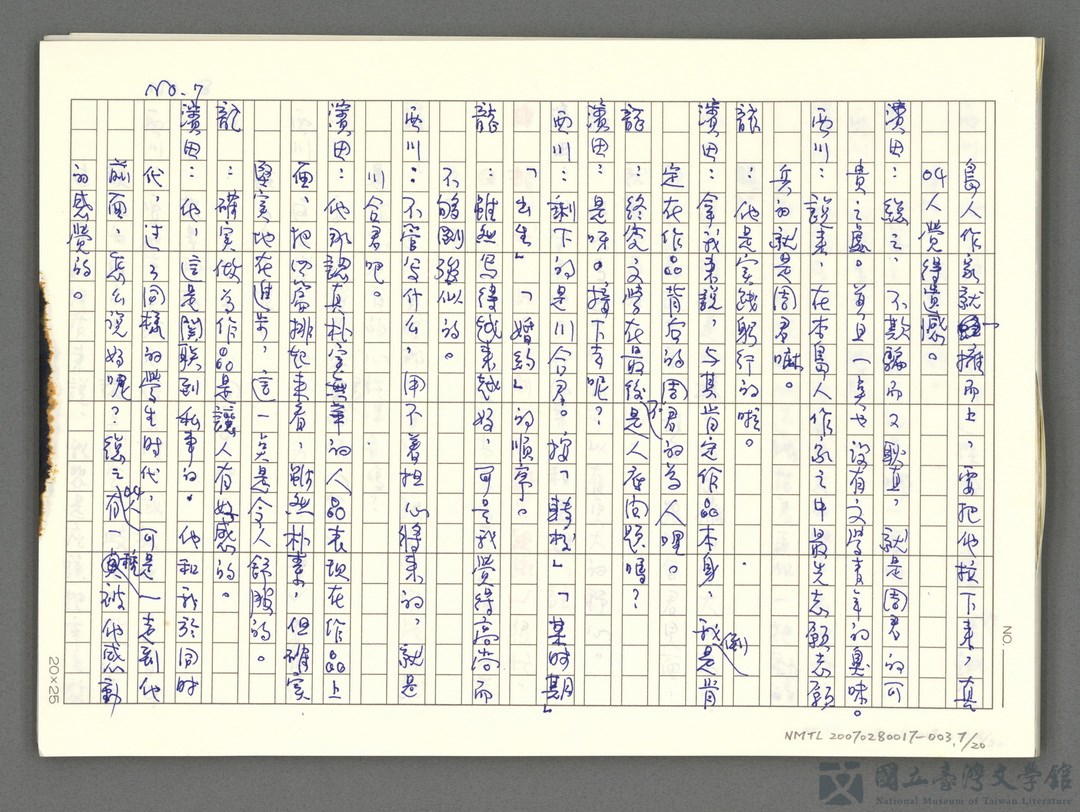 No. 7
島人作家就擁而上，要把他拉下來，真
04人覺得遺憾。
濱田：總之，不欺騙而又認真，就是周君的可
貴之處。並且一点也沒有文學青年的臭味。
西川：說來，在本島人作家之中最先志願志願
兵的就是周君嘛。
龍：他是实踐躬行的啦。
濱田：拿我來說，与其肯定作品本身，我倒是肯
定在作品背后的周君的為人哩。
龍：終究文學在最後是不是人產问題嗎？
濱田：是呀。接下去呢？
西川：剩下的是川合君。按「轉校」「某时期」
「出生」「婚約」的順序。
龍：雖然写得越來越好，可是我覺得高尚而
不够剛強似的。
西川：不管写什么，用不着担心將來的，就是
川合君吧。
濱田：他那認真朴实無華的人品表現在作品上
面，把四篇排起來看，雖然朴素，但確实
堅实地在進步，這一点是令人舒服的。
龍：確实做为作品是讓人有好感的。
濱田：他，這是関联到私事的。他和我於同时
代，过了同樣的學生时代，可是一走到他
前面，怎么说好呢？總之有一種04人被他感動
的感覺的。
NO
20×25
NMTL 20070280017-003.7/20
國立臺灣文學館
National Museum of Taiwan Literature